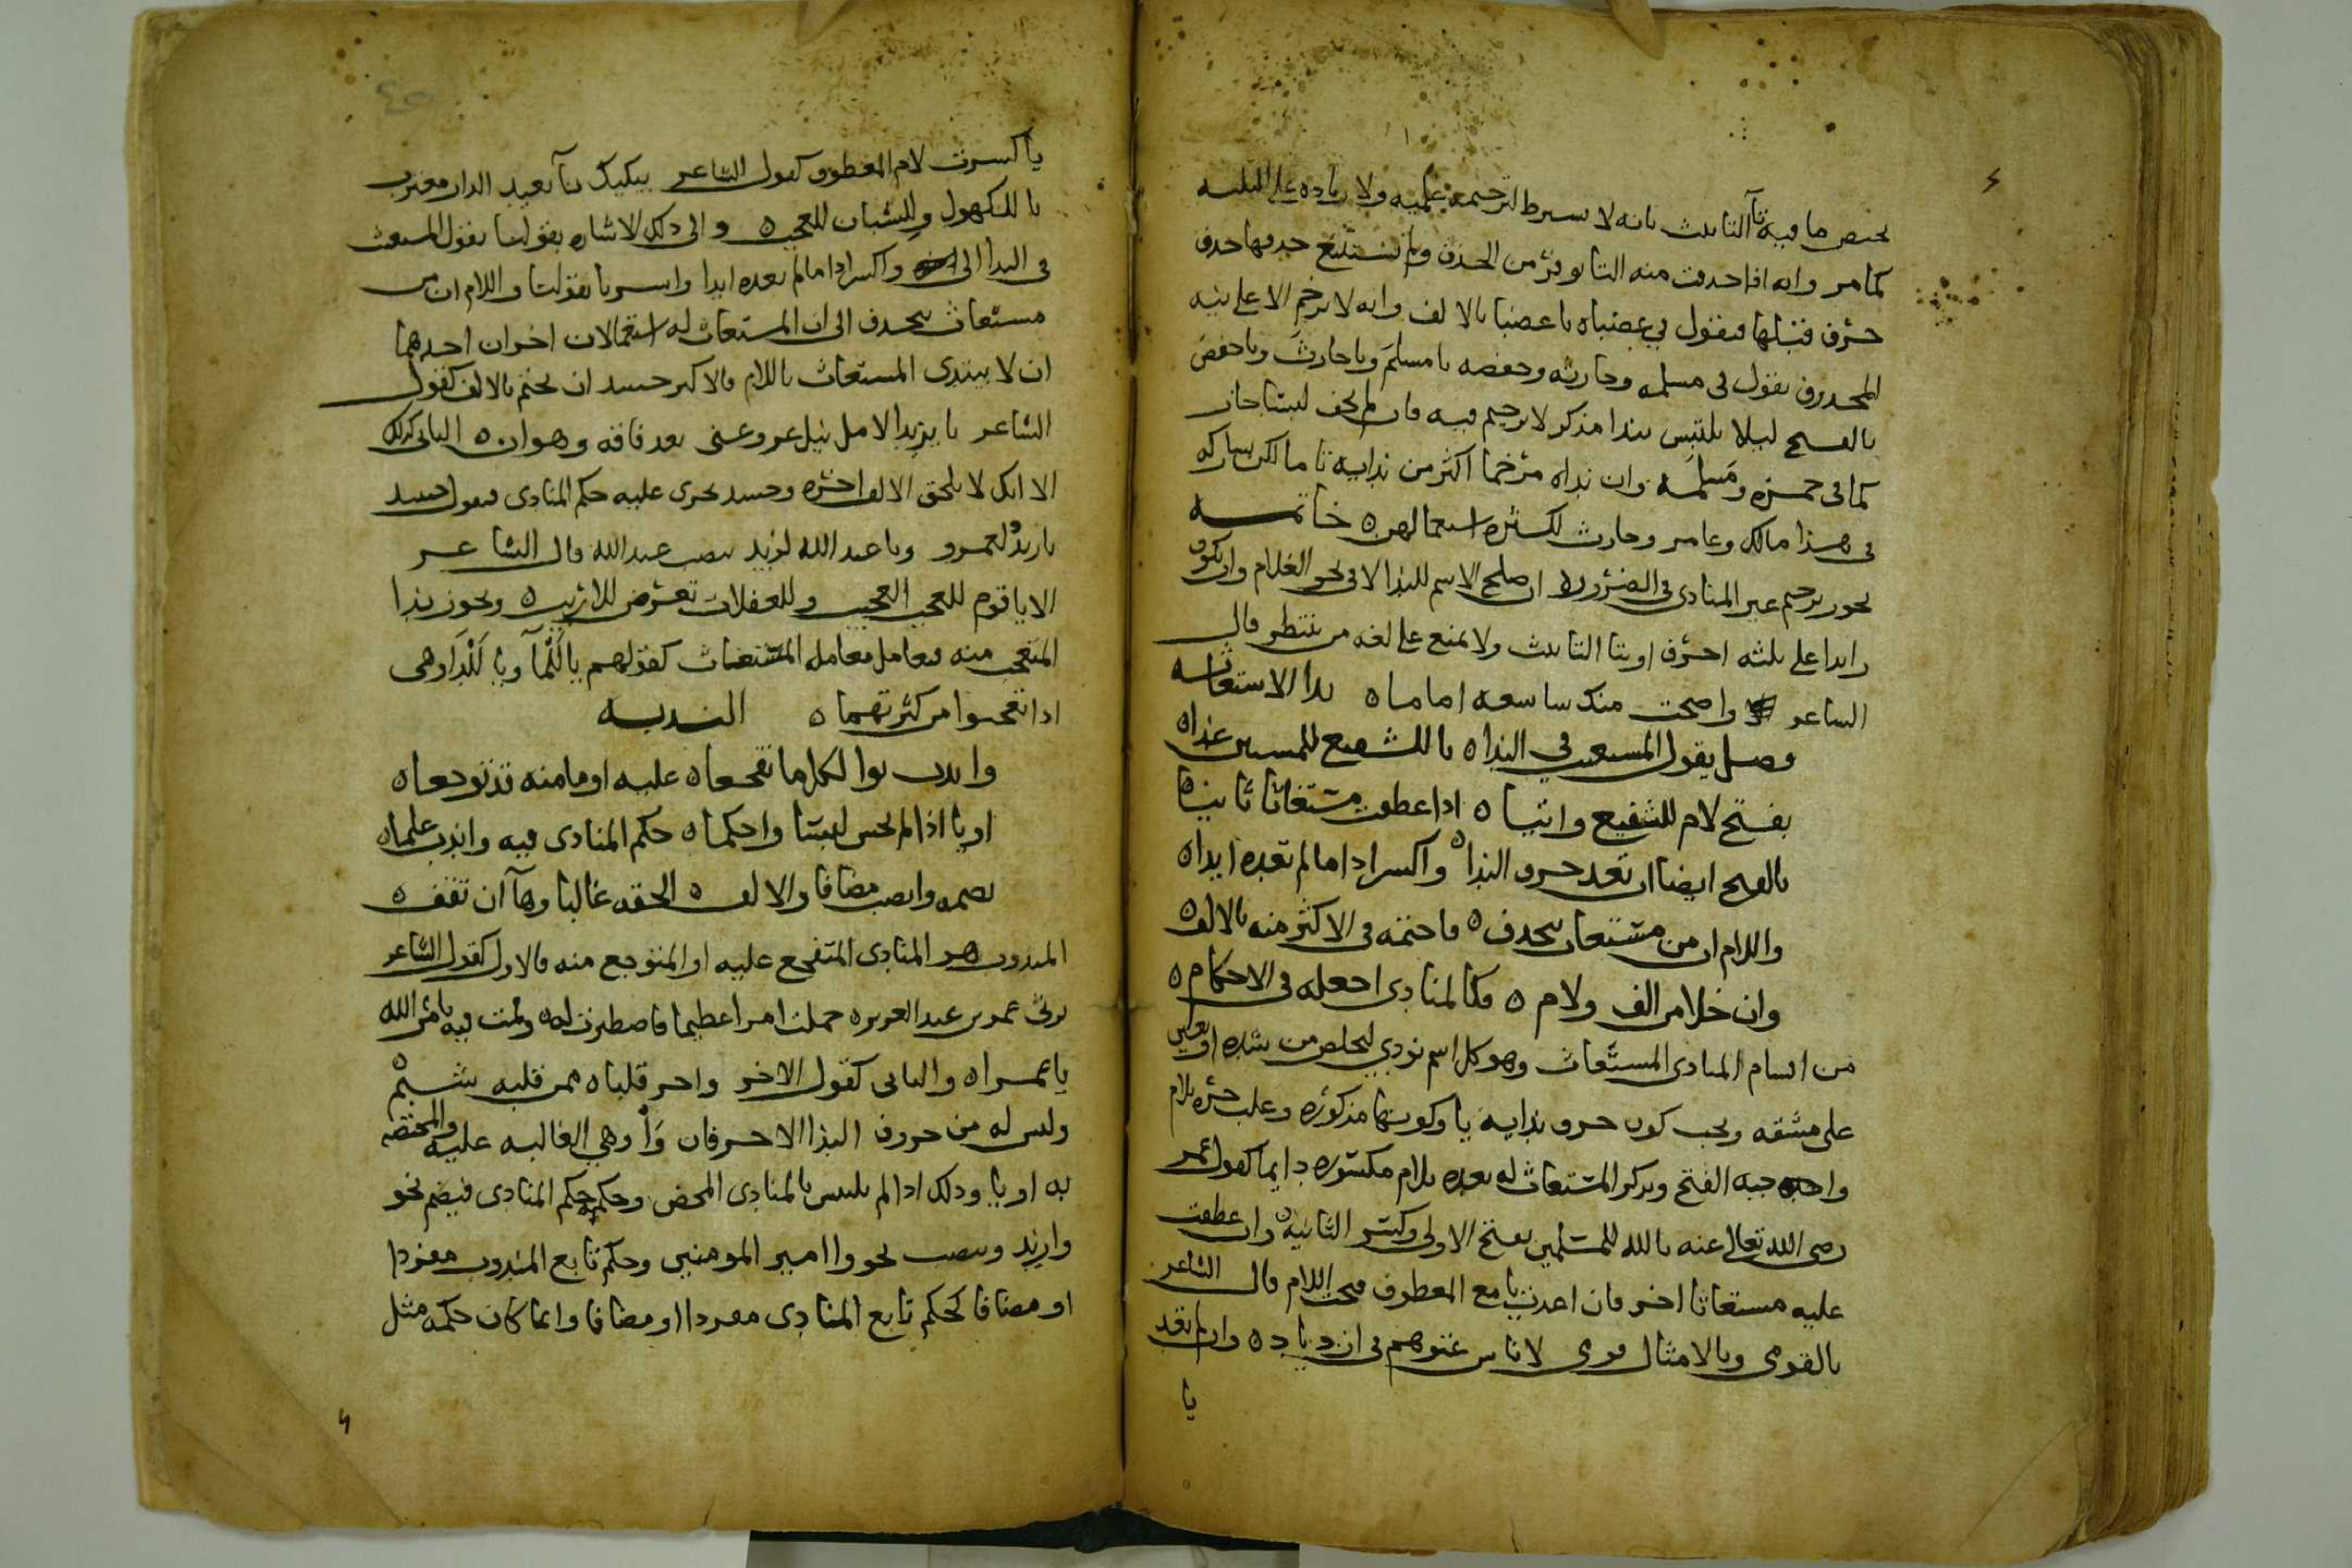 يختص ما فيه تآ التانيث بانه لا يشترط لترخيمه علميه ولا زياده على الثلثه
كما مر وانه اذا حذفت منه التا توفر من الحذف ولم يستتبع حذفها حذف
حرف قبلها فتقول في عقنباه يا عقنبا بالالف وانه لا يرخم الا على نيه
المحذوف تقول في مسلمه وحارثه وحفصه يا مسلمَ ويا حارثَ ويا حفصَ
بالفتح ليلا يلتبس بندا مذكر لا ترخيم فيه فان لم يخف لبسا جاز
كما في حمزه ومَسلمَه وان نداه مرخما اكثر من ندايه تاما لكن يشاركه
في هذا مالك وعامر وحارث لكثره استعمالهن ه خاتمه
يجوز ترخيم غير المنادى في الضروره ان صلح الاسم للندا لا في نحو الغلام وان يكون
زايدا على ثلثه احرف او بتا التانيث ولا يمتنع على لغه من ينتظر قال
الشاعر واضحت منك شاسعه اماما ه ندا الاستغاثه
وصل يقول المستغيث في الندا ه يا للشفيع للمسيين غدا ه
بفتح لام للشفيع واتيا ه اذا عطفت مستغاثا ثانيا ه
بالفتح ايضا ان تعد حرف الندا ه واكسر اذا ما لم تعده ابدا ه
واللام ان من مستغاث تحذف ه فاختمه في الاكثر منه بالالف ه
وان خلا من الف ولام ه فكالمنادى اجعله في الاحكام ه
من اقسام المنادى المستغاث وهو كل اسم نودي ليخلص من شده او يعين
على مشقه ويجب كون حرف ندايه يا وكونها مذكوره وغلب جره بلام
واجبه الفتح ويذكر المستغاث له بعده بلام مكسوره دايما كقول عمر
رضي الله تعالى عنه يا لله للمسلمين بفتح الاولى وكسر الثانيه ه وان عطفت
عليه مستغاثا اخر فان اعدت يا مع المعطوف فتحت اللام قال الشاعر
يا لقومى ويا لامثال قومى لاناس عتوهم في ازدياد ه وان لم تعد
يا
يا كسرت لام المعطوف كقول الشاعر يبكيك نآ بعيد الدار مغترب
يا للكهول وللشبان للعجب ه والى ذلك الاشاره بقولنا يقول المستغيث
في الندا الى واكسر اذا ما لم تعده ابدا واشرنا بقولنا واللام ان من
مستغاث تحذف الى ان المستغاث له استعمالان اخران احدهما
ان لا يبتدى المستغاث باللام فالاكثر حينيذ ان يختم بالالف كقول
الشاعر يا يزيدا لامل نيل عز وغنى بعد فاقه وهوان ه الثاني كذلك
الا انك لا تلحق الالف اخره وحينيذ يجرى عليه حكم المنادى فتقول حينيذ
يا زيدُ لعمرو ويا عبد الله لزيد بنصب عبد الله قال الشاعر
الا يا قوم للعجب العجيب وللغفلات تعرض للاريب ه ويجوز ندا
المتعجب منه فيعامل معامله المستغاث كقولهم يا لَلْمآ ويا لَلْدَواهى
اذا تعجبوا من كثرتهما ه الندبه
واندب بوا لكل ما تفجعا ه عليه او ما منه قد توجعا ه
او يا اذا لم تخش لبسا واحكما ه حكم المنادى فيه واندب علما ه
بضمه وانصب مضافا والالف ه الحقه غالبا وهآ ان تقف ه
المندوب هو المنادى المتفجع عليه او المتوجع منه فالاول كقول الشاعر
يرثى عمر بن عبد العزيز ه حملت امرا عظيما فاصطبرت له ه وقمت فيه بامر الله
يا عمرا ه والثاني كقول الاخر واحر قلباه ممن قلبه شبم ه
وليس له من حروف الندا الا حرفان وَا وهي الغالبه عليه والمختصه
به او يا وذلك اذا لم يلتبس بالمنادى المحض وحكمه حكم المنادى فيضم نحو
وازيد وينصب نحو وا امير المومنين وحكم تابع المندوب مفردا
او مضافا كحكم تابع المنادى مفردا او مضافا وانما كان حكمه مثل